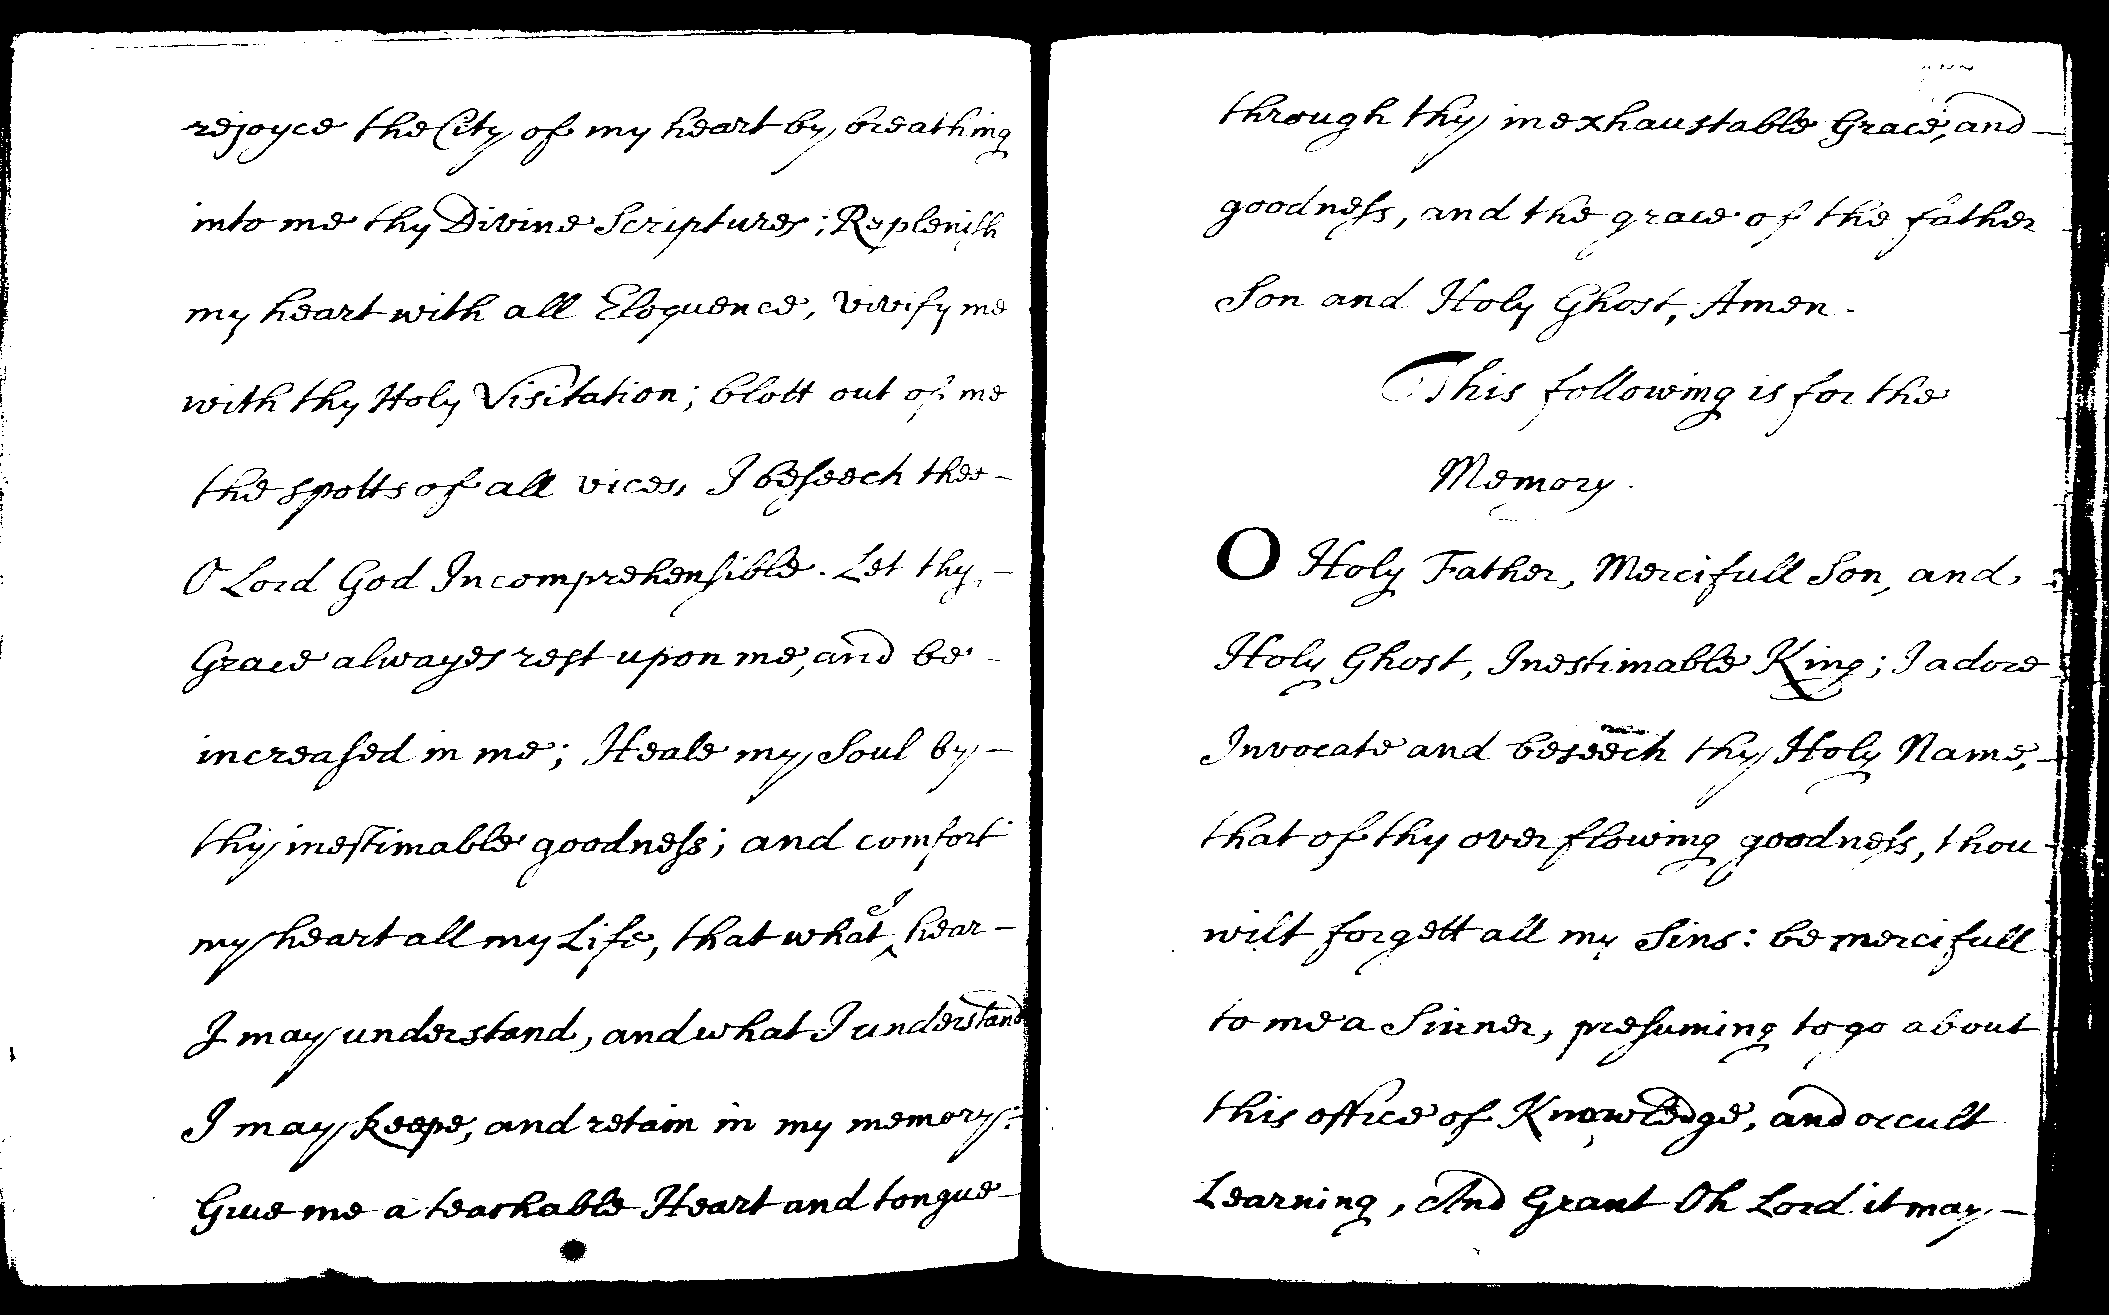 rejoyce the City of my heart by breathing
into me thy Divine Scriptures; Replenish
my heart with all Eloquence, vivify me
with thy Holy Visitation; blott out of me
the spotts of all vices, I beseech thee –
O Lord God Incomprehensible. Let thy –
Grace alwayes rest upon me, and be –
increased in me; Heale my Soul by –
thy inestimable goodness; and comfort
my heart all my Life, that what I hear –
I may understand, and what I understand
I may keepe, and retain in my memory:
Give me a teachable Heart and tongue –
through thy inexhaustable Grace, and –
goodness, and the grace of the father
Son and Holy Ghost, Amen.
This following is for the
Memory.
O Holy Father, Mercifull Son, and
Holy Ghost, Inestimable King; I adore
Invocate and beseech thy Holy Name, –
that of thy overflowing goodness, thou
wilt forgett all my Sins: be mercifull
to me a Sinner, presuming to go about
this office of Knowledge, and occult
Learning, And Grant Oh Lord it may –